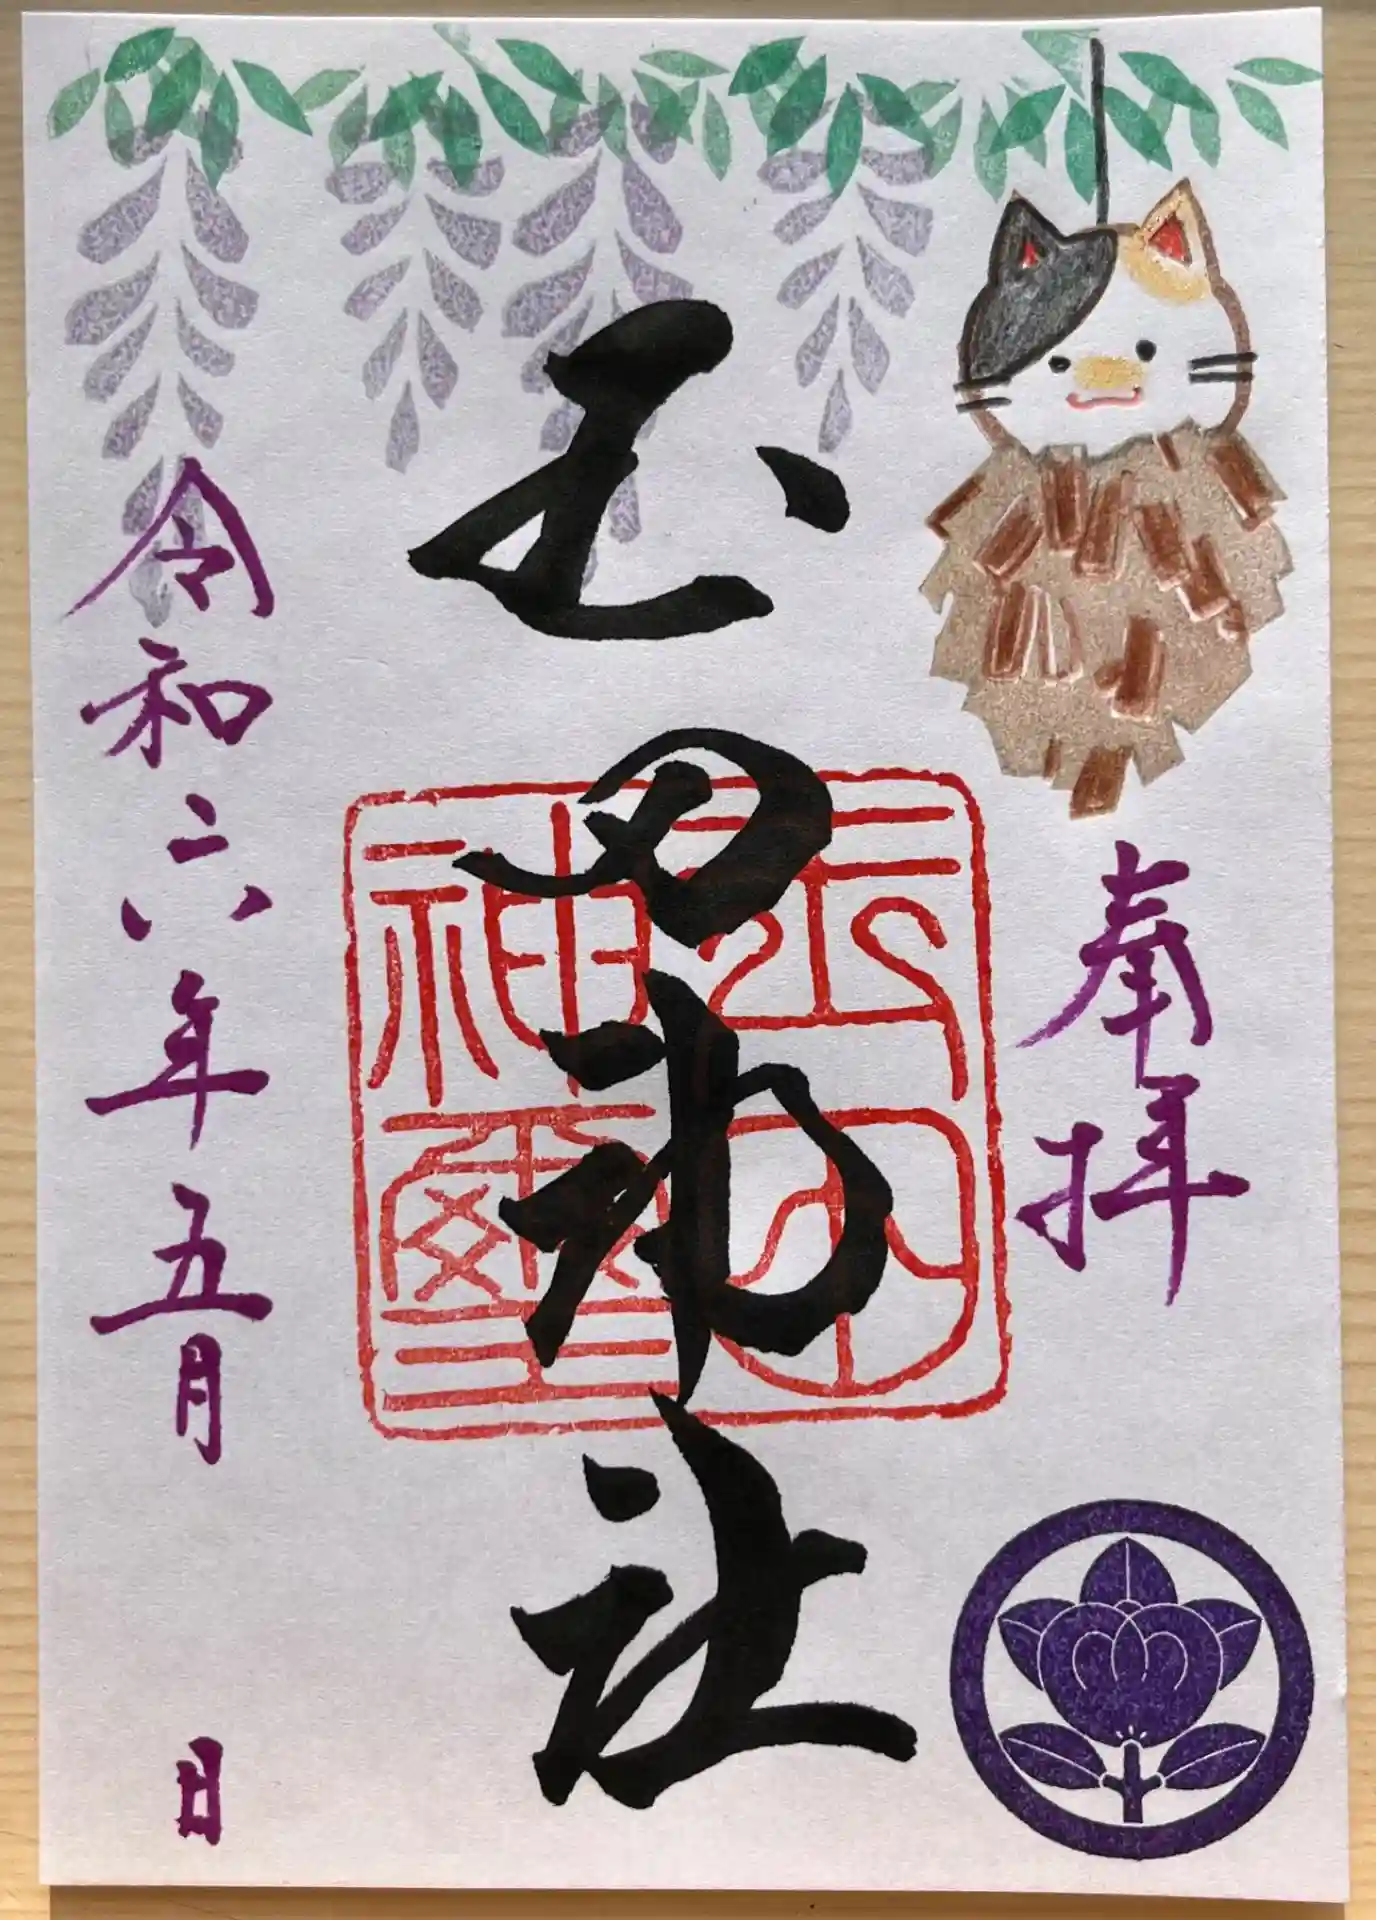 奉拝
玉田神社
玉田
神璽
令和六年五月 日